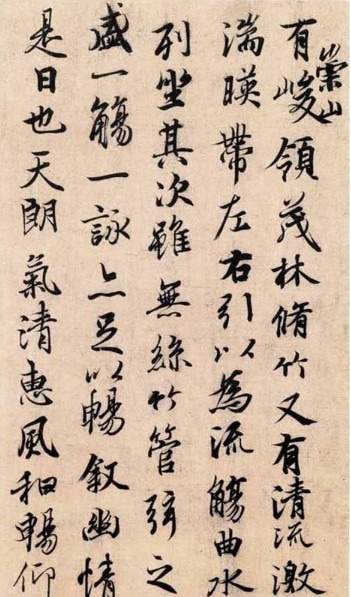 有崇山峻領茂林脩竹又有清流激
湍暎帶左右引以為流觴曲水
列坐其次雖無絲竹管弦之
盛一觴一詠亦足以暢敘幽情
是日也天朗氣清惠風和暢仰